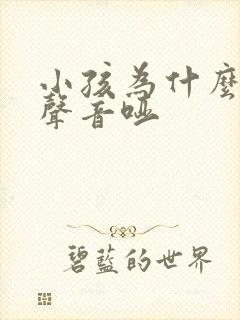 小孩為什麼
聲音啞
碧藍的世界